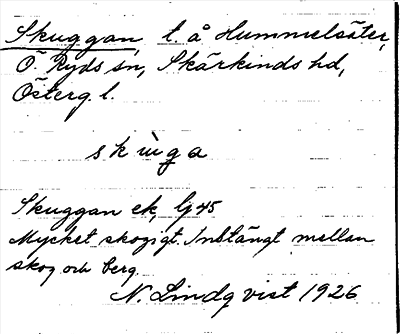 Skuggan, t. å Hummelsäter,
Ö. Ryds sn, Skärkinds hd,
Österg. l.
skùga
Skuggan ek lj 45
Mycket skogigt. Instängt mellan
skog och berg.
N. Lindqvist 1926